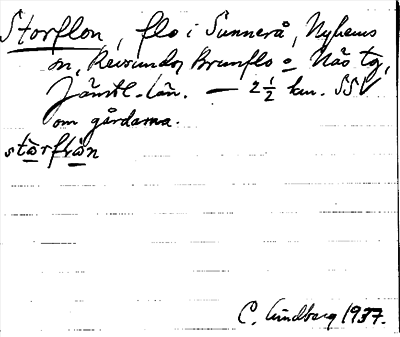 Storflon, flo i Sunnerå, Nyhems
sn, Revsunds, Brunflo o Näs tg,
Jämtl. län. — 2 1/2 km. SSV
om gårdarna.
stɷrflɷn
C. Lindberg 1937.